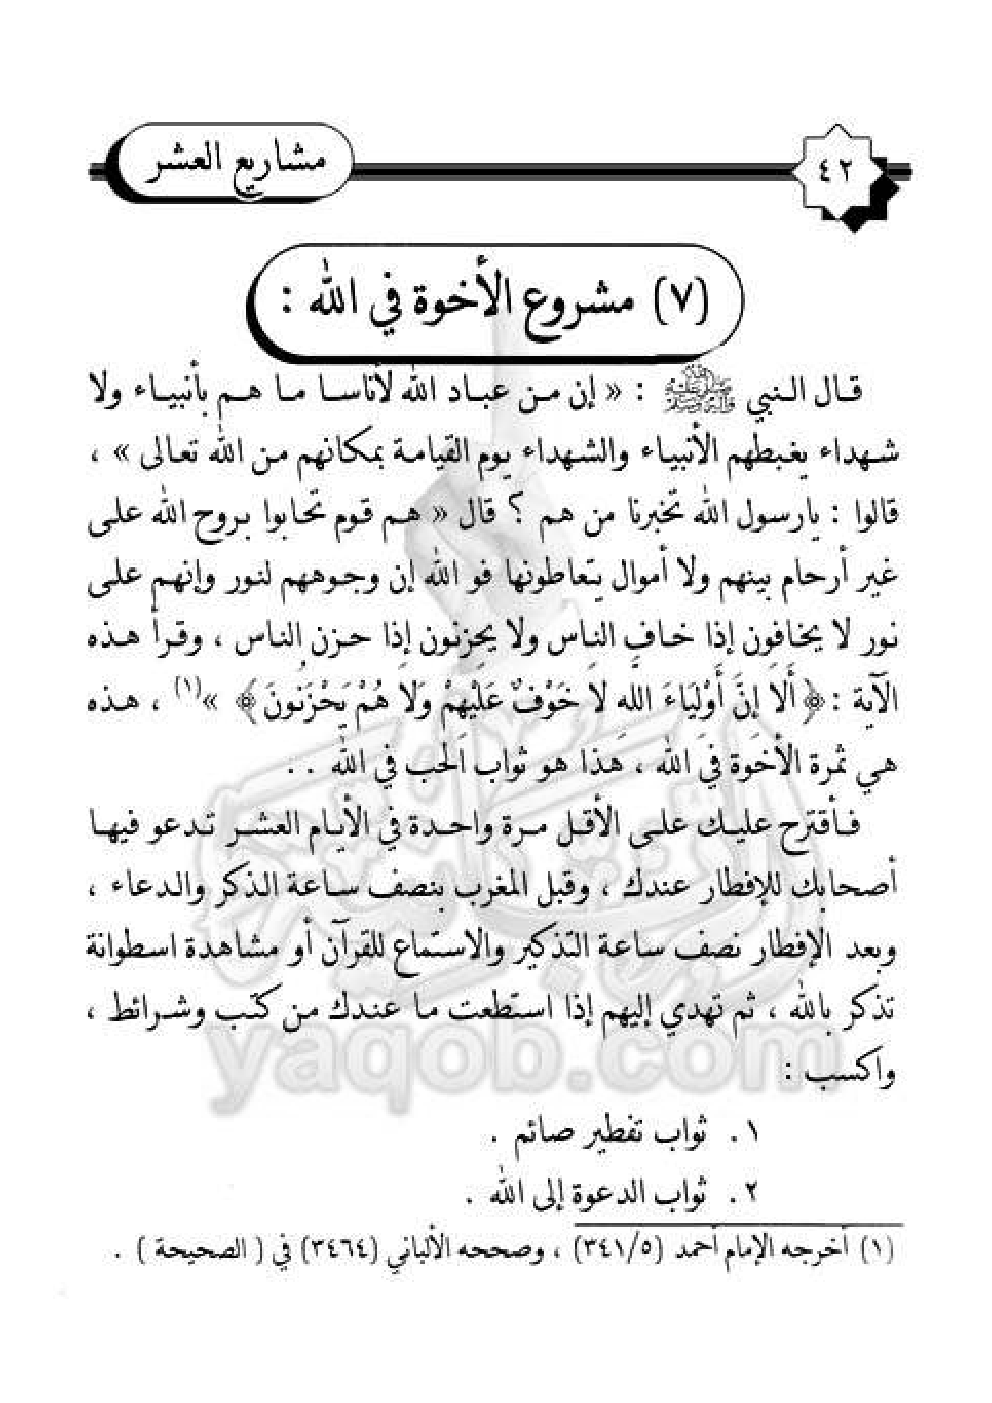 مشاريع العشر
٤٢
(٧) مشروع الأخوة في الله :
قال النبي ﷺ : « إن من عباد الله لأناسا ما هم بأنبياء ولا
شهداء يغبطهم الأنبياء والشهداء يوم القيامة بمكانهم من الله تعالى » ،
قالوا : يارسول الله تخبرنا من هم ؟ قال « هم قوم تحابوا بروح الله على
غير أرحام بينهم ولا أموال يتعاطونها فو الله إن وجوههم لنور وإنهم على
نور لا يخافون إذا خاف الناس ولا يحزنون إذا حزن الناس ، وقرأ هذه
الآية : ﴿ أَلاَ إِنَّ أَوْلِيَاءَ اللهِ لاَ خَوْفٌ عَلَيْهِمْ وَلاَ هُمْ يَحْزَنُونَ ﴾ »(١) ، هذه
هي ثمرة الأخوة في الله ، هذا هو ثواب الحب في الله . .
فأقترح عليك على الأقل مرة واحدة في الأيام العشر تدعو فيها
أصحابك للإفطار عندك ، وقبل المغرب بنصف ساعة الذكر والدعاء ،
وبعد الإفطار نصف ساعة التذكير والاستماع للقرآن أو مشاهدة اسطوانة
تذكر بالله ، ثم تهدي إليهم إذا استطعت ما عندك من كتب وشرائط ،
yaqob.com
واكسب :
١. ثواب تفطير صائم .
٢. ثواب الدعوة إلى الله .
(١) أخرجه الإمام أحمد (٣٤١/٥) ، وصححه الألباني (٣٤٦٤) في ( الصحيحة ) .